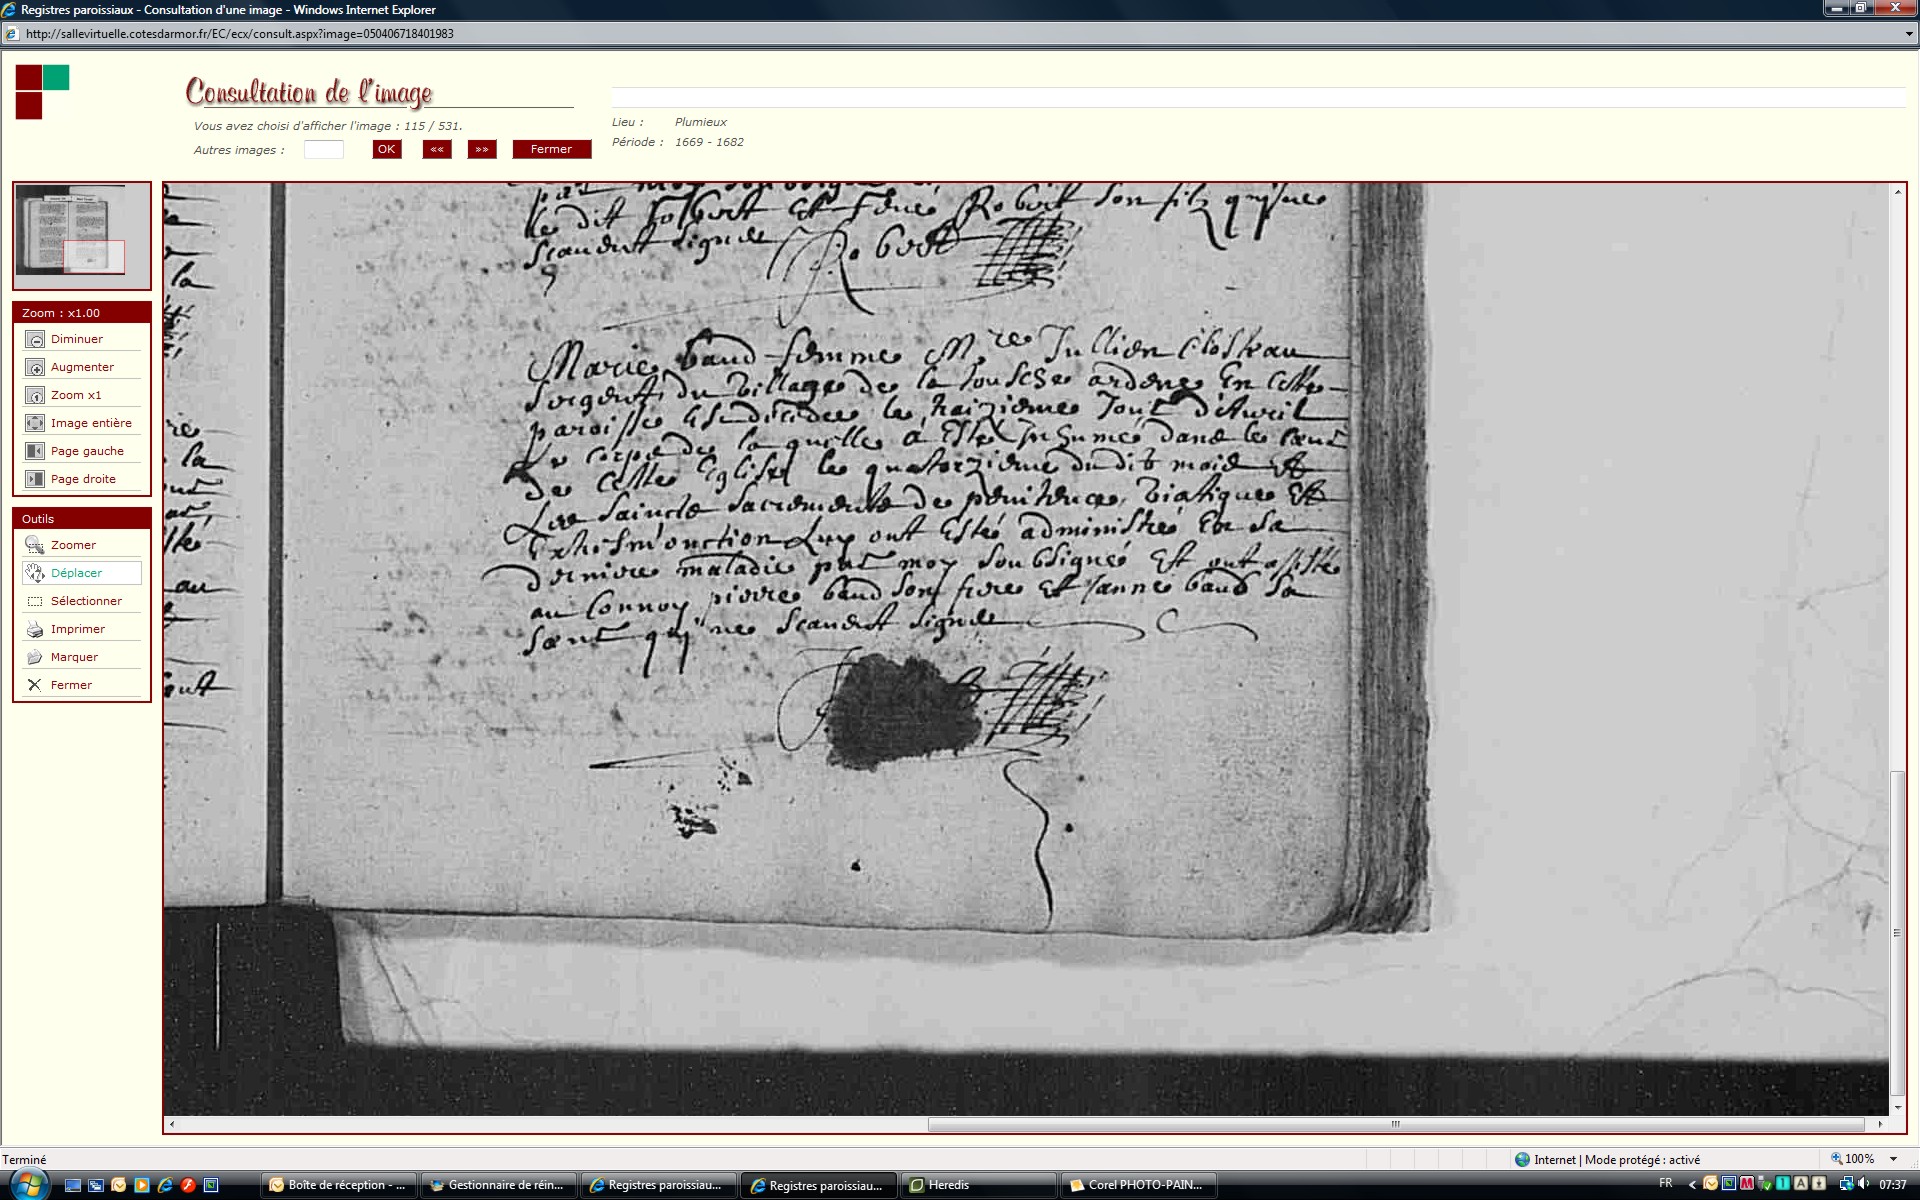 Registres paroissiaux - Consultation d'une image - Windows Internet Explorer
http://sallevirtuelle.cotesdarmor.fr/EC/ecx/consult.aspx?image=050406718401983
Consultation de l'image
Vous avez choisi d'afficher l'image : 115 / 531.
Autres images :
OK
««
»»
Fermer
Lieu : Plumieux
Période : 1669 - 1682
Zoom : x1.00
Diminuer
Augmenter
Zoom x1
Image entière
Page gauche
Page droite
Outils
Zoomer
Déplacer
Sélectionner
Imprimer
Marquer
Fermer
le dit Robert et Robert son filz qui ne
scaudent signer Robert
Marie baud femme M.re Jullien
sergent du village de la en cette
paroisse est decedee le traizieme Jour d'Avril
Le corps de la quelle a esté Inhumé dans le cœur
de cette Eglise le quatorzieme dudit mois et
Les saincts sacrements de penitence viatique Et
Extresmonction Luy ont esté administré En sa
derniere maladie par moy soubsigné Et ont assisté
au Connoy pierre baud son frere et Janne baud sa
sœur qui ne scaudent signer
Terminé
Internet | Mode protégé : activé
100%
Boîte de réception - ...
Gestionnaire de réin...
Registres paroissiau...
Registres paroissiau...
Heredis
Corel PHOTO-PAIN...
FR
07:37